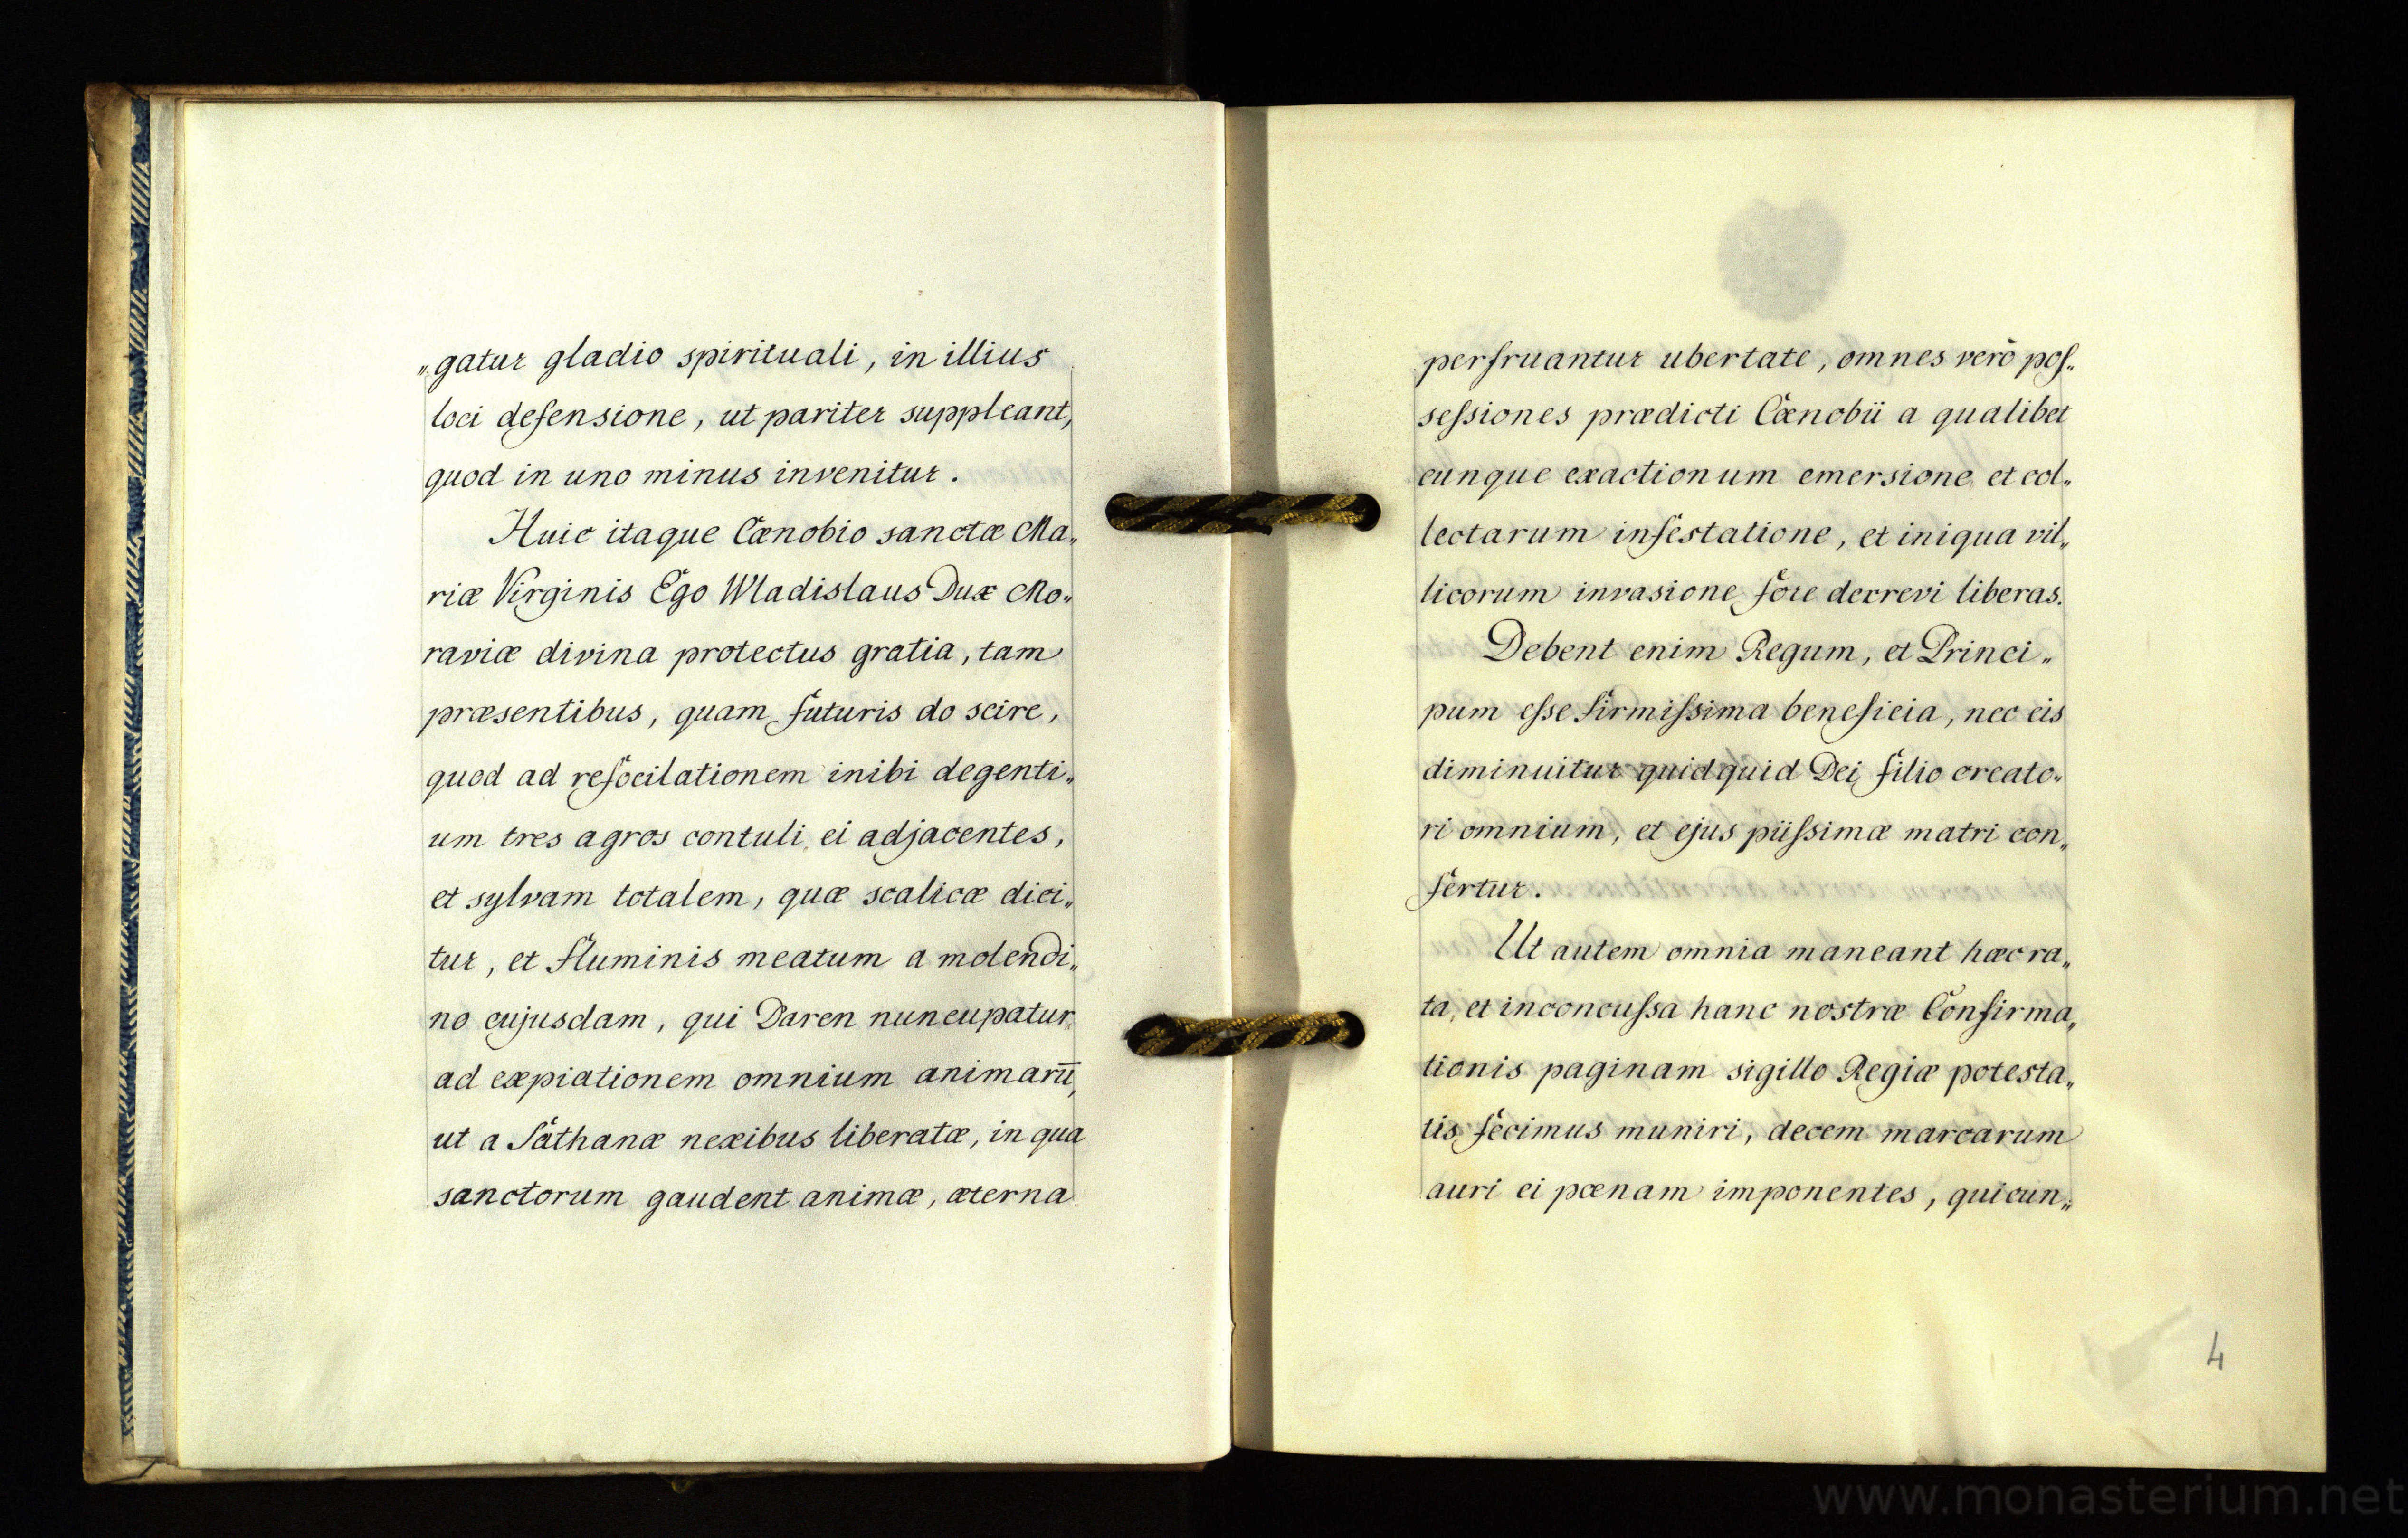 „gatur gladio spirituali, in illius
loci defensione, ut pariter suppleant,
quod in uno minus invenitur.
Huic itaque Cœnobio sanctæ Ma„
riæ Virginis Ego Wladislaus Dux Mo„
raviæ divina protectus gratia, tam
præsentibus, quam futuris do scire,
quod ad refocilationem inibi degenti„
um tres agros contuli ei adjacentes,
et sylvam totalem, quæ scalicæ dici„
tur, et fluminis meatum a molendi„
no cujusdam, qui Daren nuncupatur,
ad expiationem omnium animarū,
ut a Sathanæ nexibus liberatæ, in qua
sanctorum gaudent animæ, æterna
perfruantur ubertate, omnes verò poſ„
seſsiones prædicti Cœnobii a qualibet
cunque exactionum emersione et col„
lectarum infestatione, et iniqua vil„
licorum invasione fore decrevi liberas.
Debent enim Regum, et Princi„
pum eſse firmiſsima beneficia, nec eis
diminuitur quidquid Dei filio creato„
ri omnium, et ejus piiſsimæ matri con„
fertur.
Ut autem omnia maneant hæc ra„
ta, et inconcuſsa hanc nostræ Confirma„
tionis paginam sigillo Regiæ potesta„
tis fecimus muniri, decem marcarum
auri ei pœnam imponentes, quicun„
4
www.monasterium.net